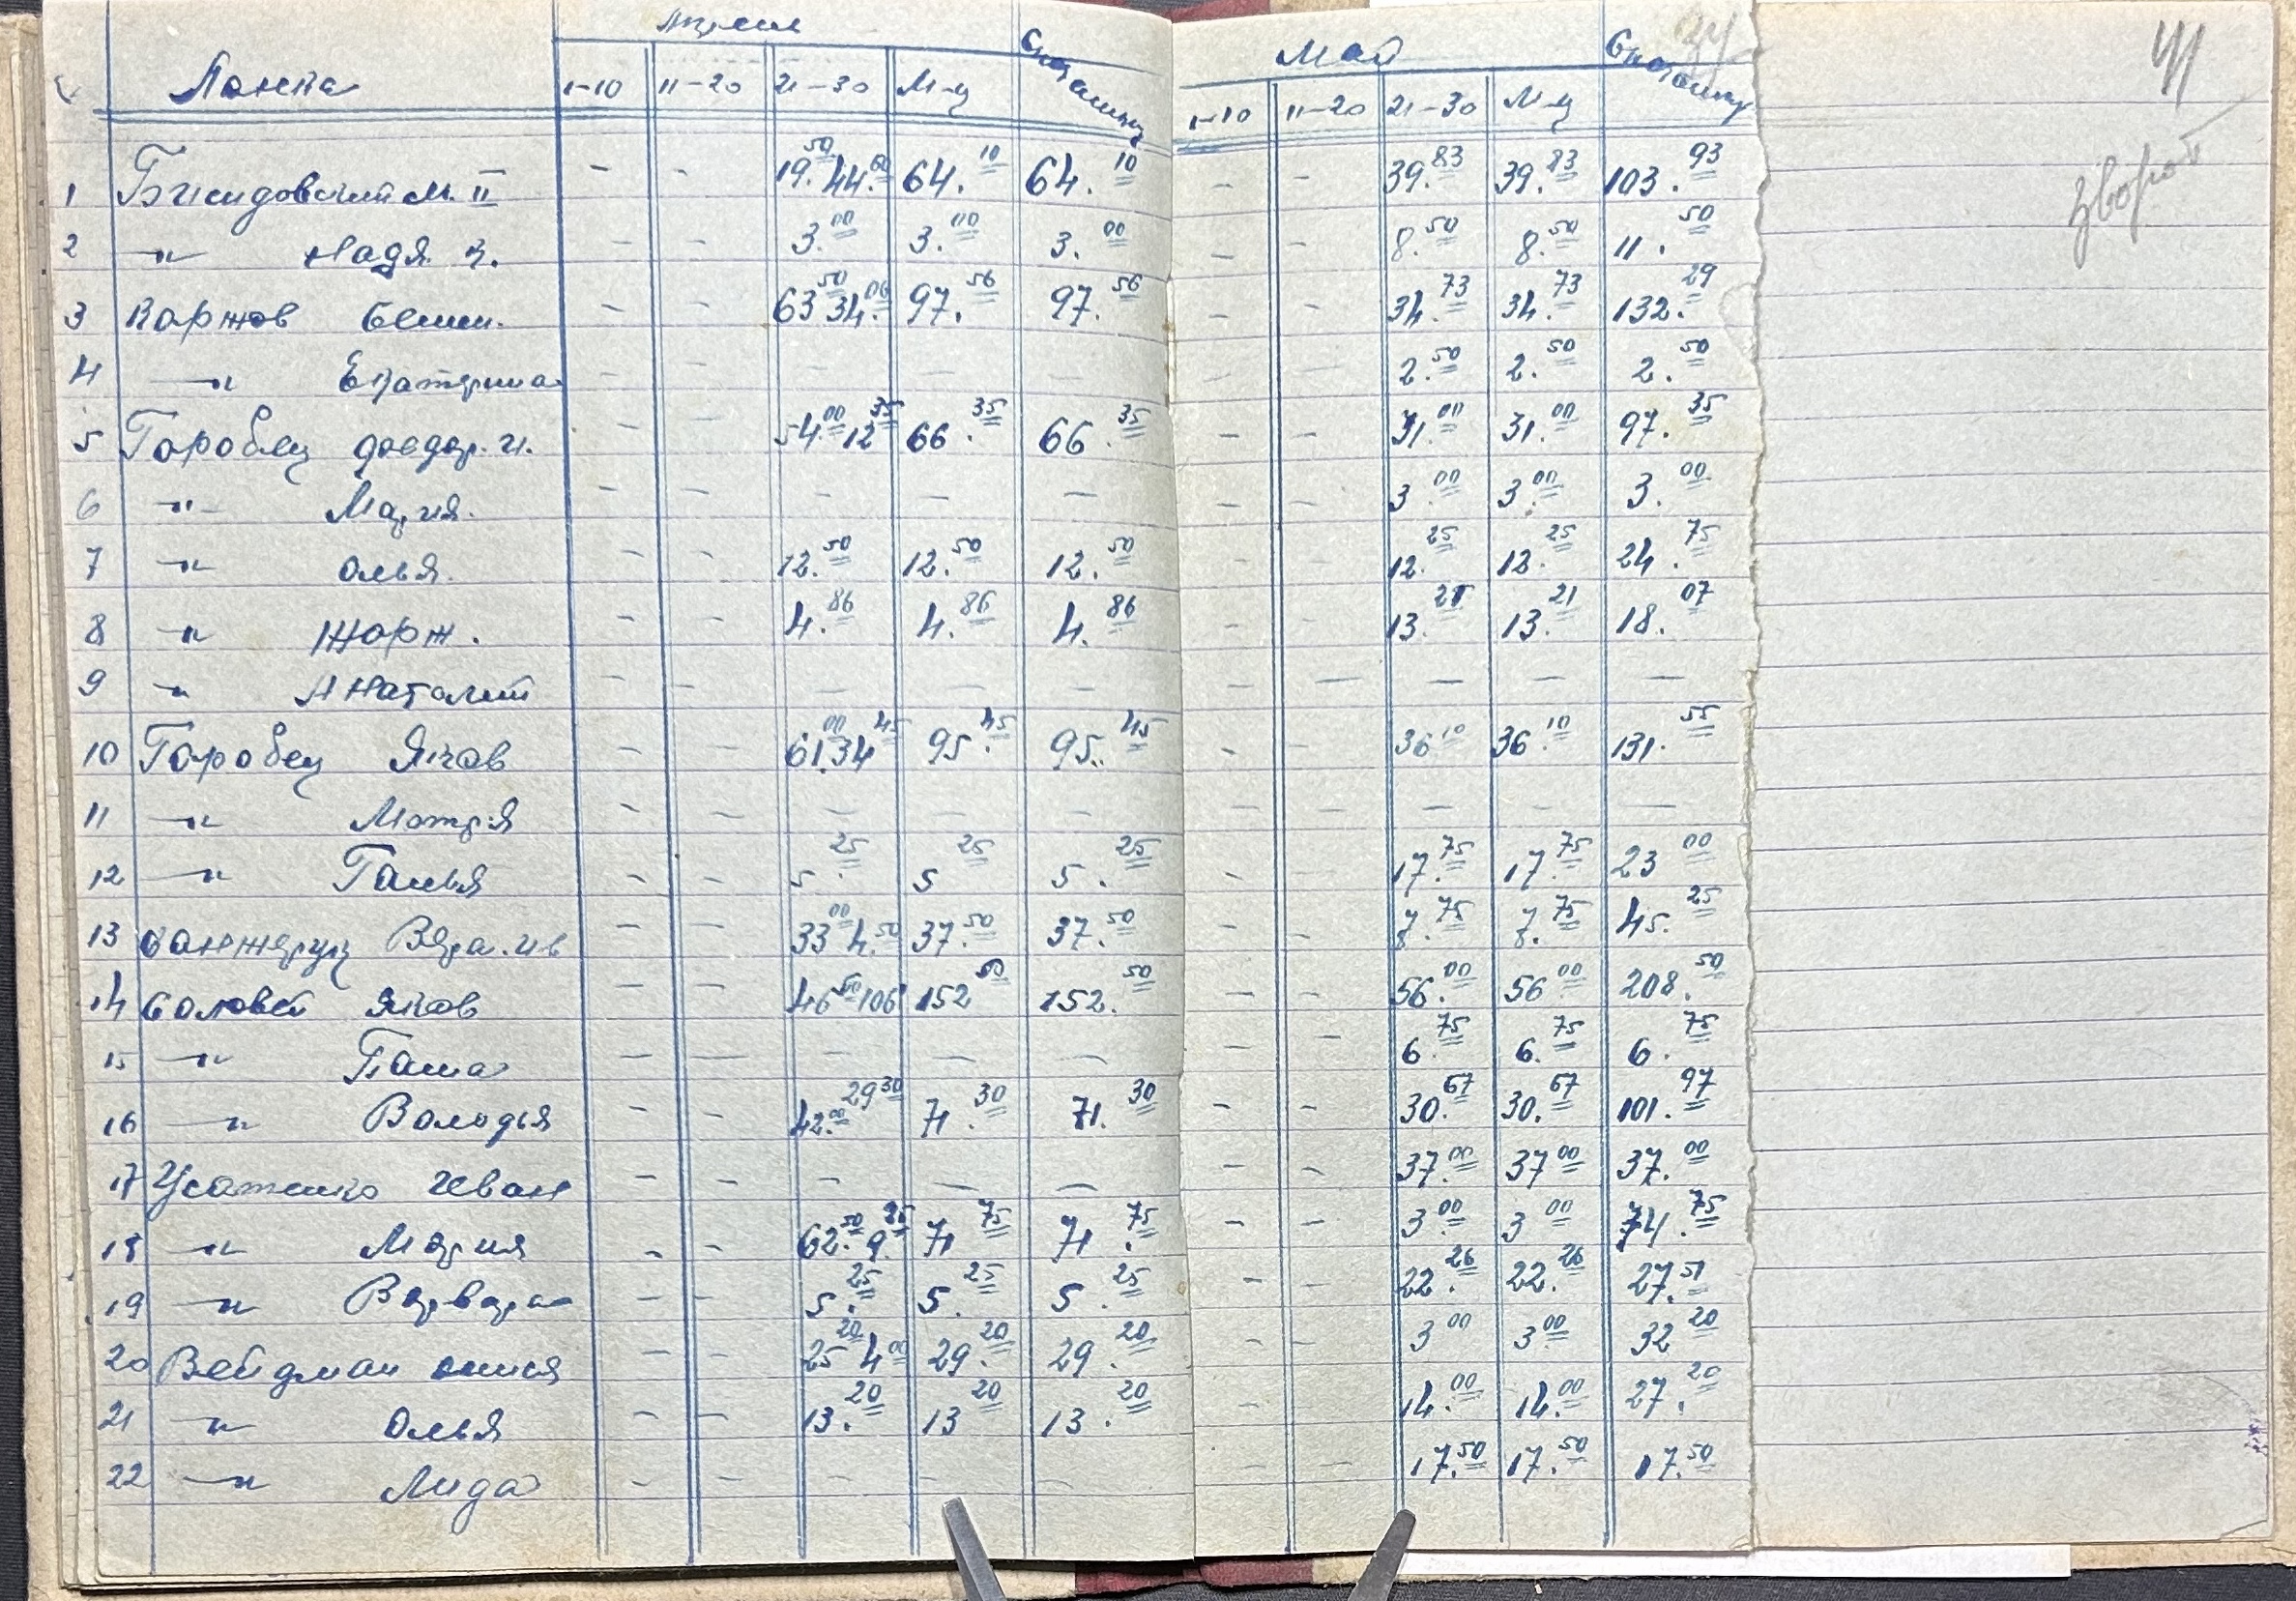 Апрель Май 41
Ланка 1-10 11-20 21-30 М-ц 1-10 11-20 21-30 М-ц зворот
1 м. II - - 19.50 44.60 64.10 64.10 - - 39.83 39.83 103.93
2 -"- Надя - - 3.00 3.00 3.00 - - 8.50 8.50 11.50
3 Коржов - - 63.50 34.06 97.56 97.56 - - 34.73 34.73 132.29
4 -"- Екатерина - - - - - - - 2.50 2.50 2.50
5 Горобец - - 54.00 12.35 66.35 66.35 - - 31.00 31.00 97.35
6 -"- Мария. - - - - - - - 3.00 3.00 3.00
7 -"- Олья. - - 12.50 12.50 12.50 - - 12.25 12.25 24.75
8 -"- Жорж. - - 4.86 4.86 4.86 - - 13.21 13.21 18.07
9 -"- Анатолий - - - - - - - - - -
10 Горобец Яков - - 61.00 34.45 95.45 95.45 - - 36.10 36.10 131.55
11 -"- Мотря - - - - - - - - - -
12 -"- Ганья - - 5.25 5.25 5.25 - - 17.75 17.75 23.00
13 Вера. Ив - - 33.00 4.50 37.50 37.50 - - 7.75 7.75 45.25
14 Соловей Яков - - 46.50 106 152.50 152.50 - - 56.00 56.00 208.50
15 -"- Паша - - - - - - - 6.75 6.75 6.75
16 -"- Володья - - 42.00 29.30 71.30 71.30 - - 30.67 30.67 101.97
17 Усатенко Иван - - - - - - - 37.00 37.00 37.00
18 -"- Мария - - 62.50 9.25 71.75 71.75 - - 3.00 3.00 74.75
19 -"- Варвара - - 5.25 5.25 5.25 - - 22.26 22.26 27.51
20 Вейдман - - 25.20 4.00 29.20 29.20 - - 3.00 3.00 32.20
21 -"- Олья - - 13.20 13.20 13.20 - - 14.00 14.00 27.20
22 -"- Лида - - - - - - - 17.50 17.50 17.50